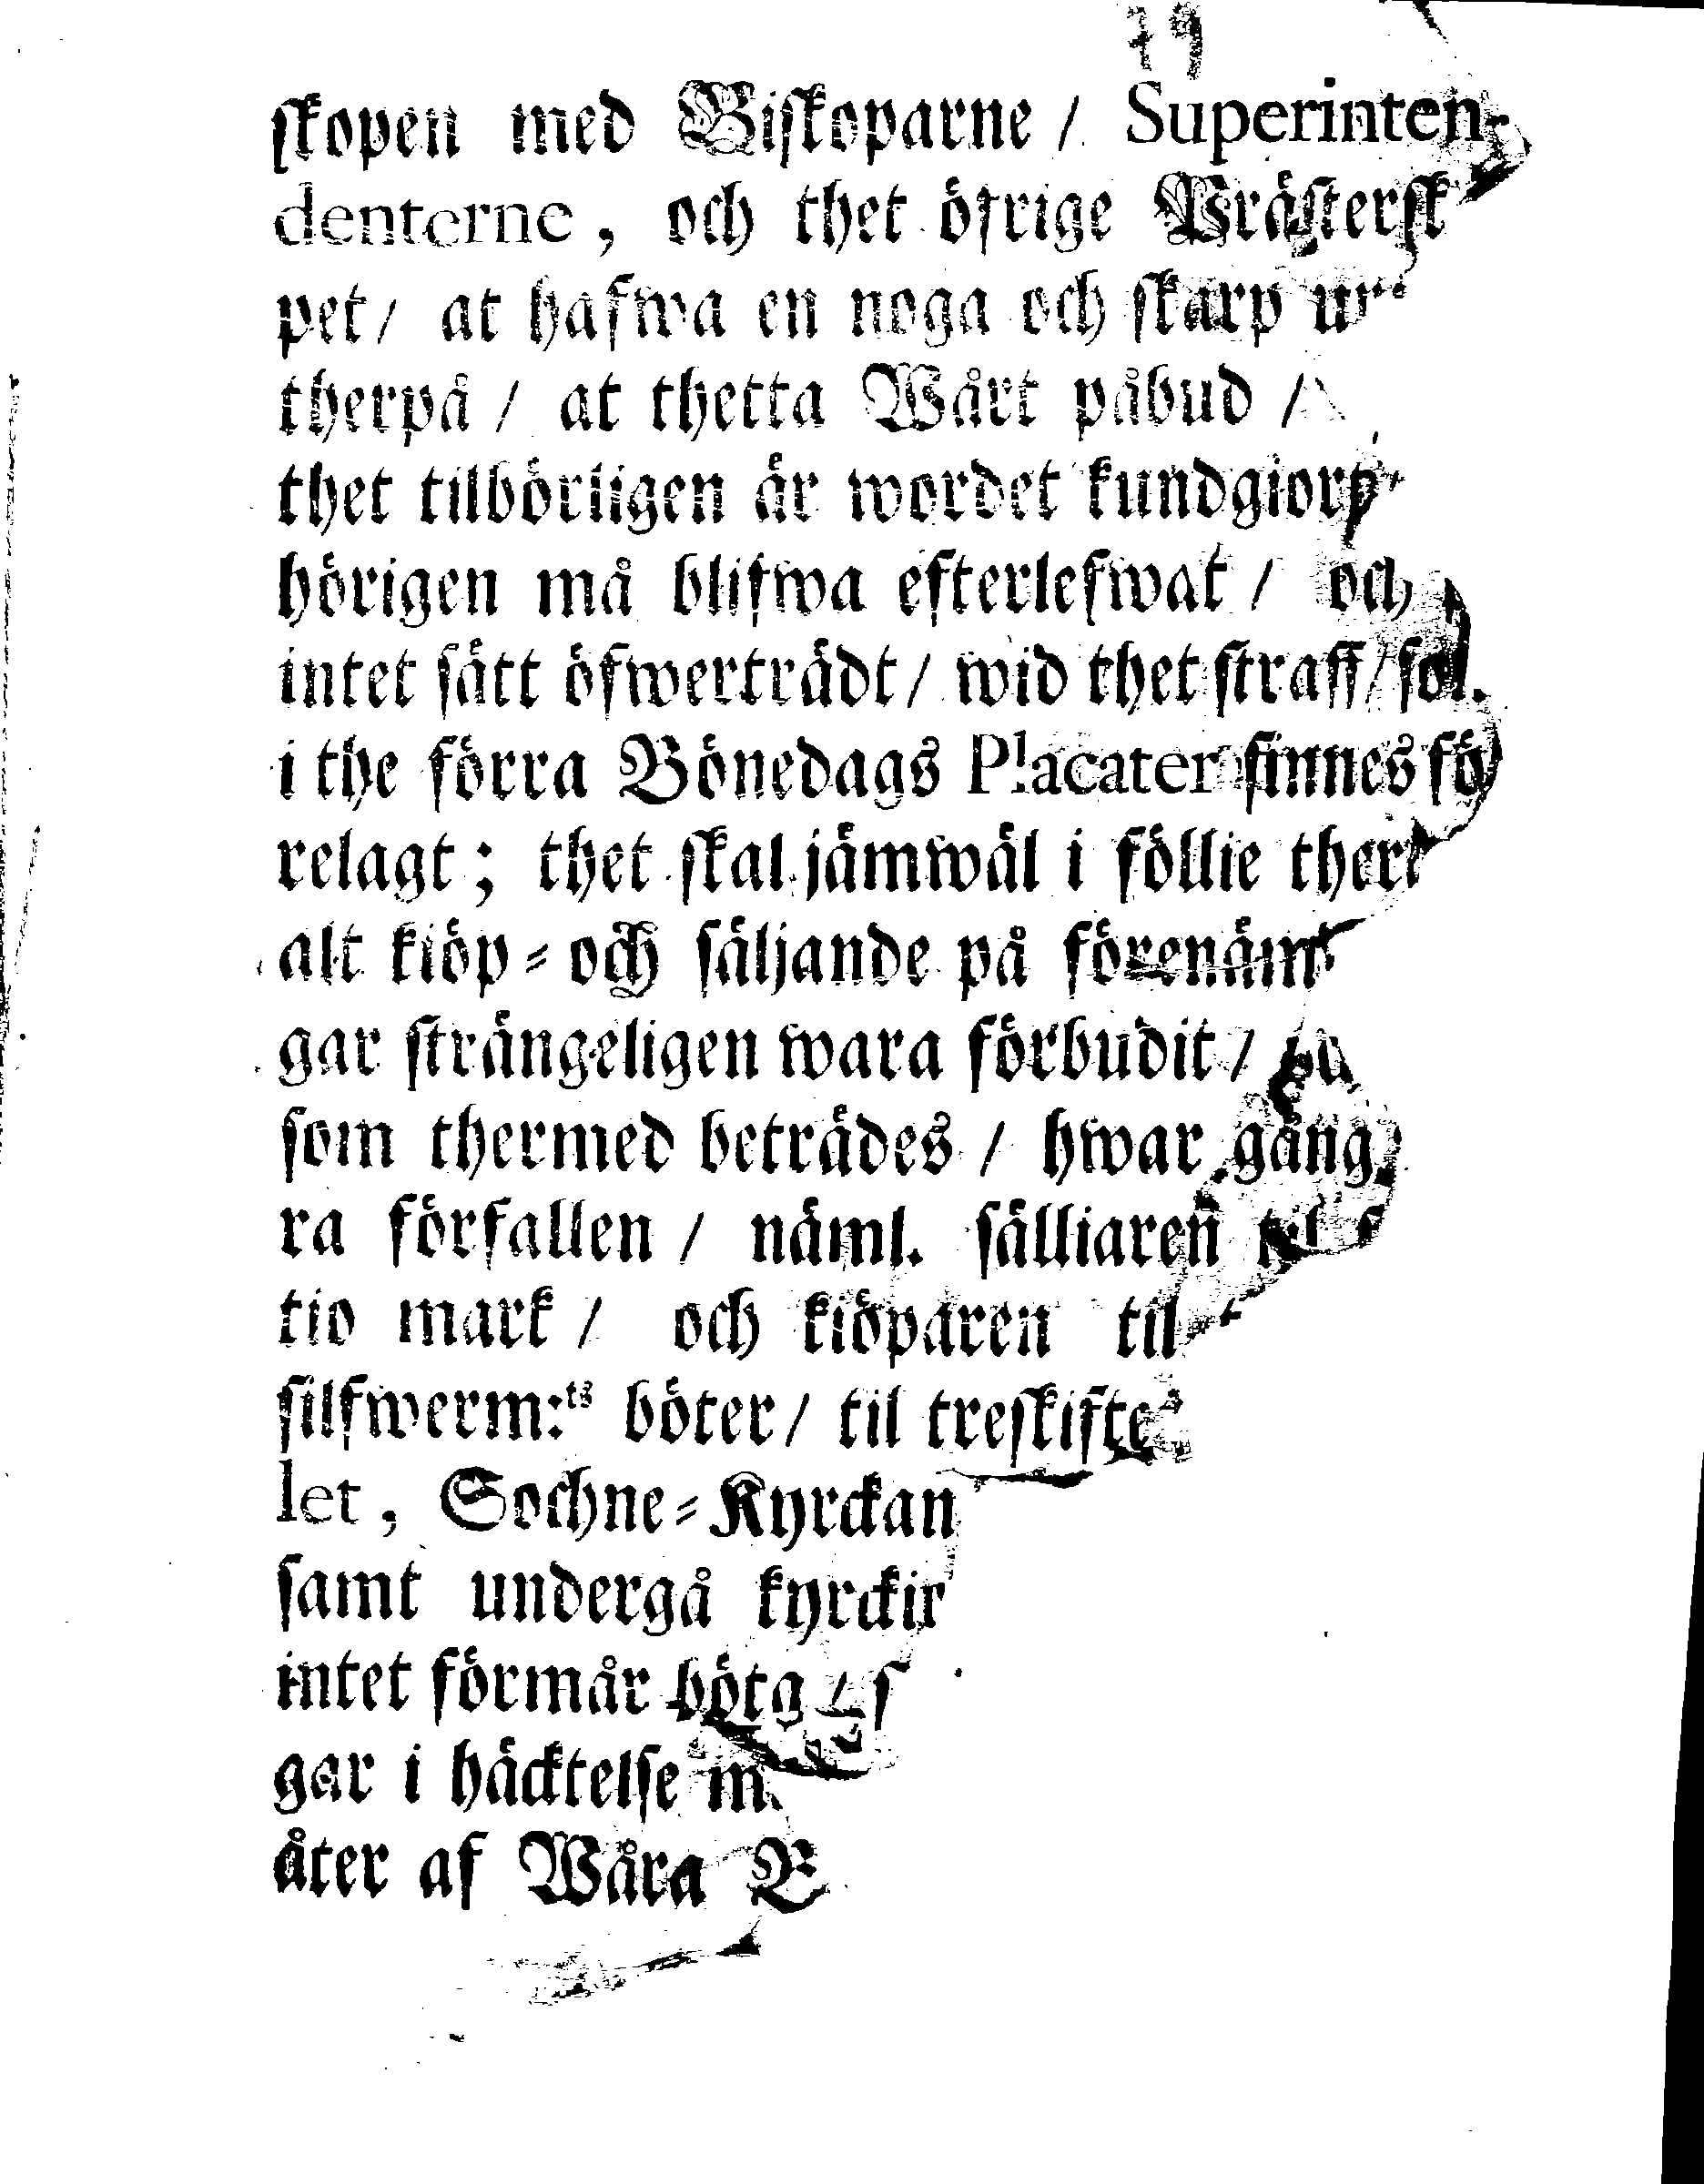 79
skopen med Biskoparne / Superinten-
denterne, och thet öfrige Prästersk
pet / at hafwa en noga och skarp
therpå / at thetta Wårt påbud /
thet tilbörligen är wordet kundgiort
hörigen må blifwa efterlefwat / och
intet sätt öfwerträdt / wid thet straff /
i the förra Bönedags Placater finnes fö
relagt; thet skal jämwäl i föllie ther
alt kiöp= och säljande på förenäm
gar strängeligen wara förbudit /
som thermed beträdes / hwar gång
ra förfallen / näml. sälliaren til
tio mark / och kiöparen til
silfwerm:ts böter / til treskifte
let, Sochne=Kyrckan
samt undergå kyrckir
intet förmår böta / s
gar i häcktelse m
åter af Wåra B